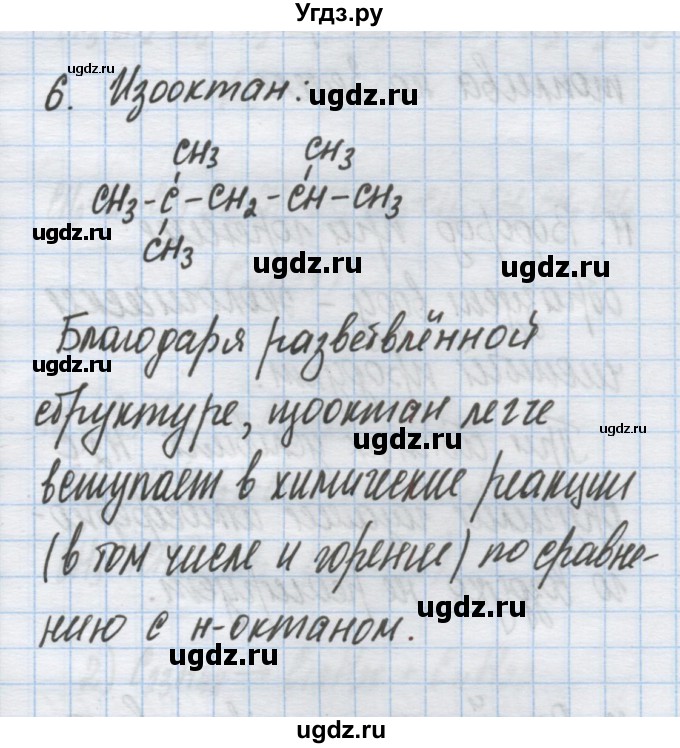 Угдз.ру
ugdz.ru
6. Изооктан:
ugdz.ru
CH3 CH3
CH3-C-CH2-CH-CH3
ugdz.ru
CH3
ugdz.ru
ugdz.ru
Благодаря разветвлённой
ugdz.ru
структуре, изооктан легче
ugdz.ru
ugdz.ru
вступает в химические реакции
(в том числе и горение) по сравне-
ugdz.ru
нию с н-октаном.
ugdz.ru
ugdz.ru